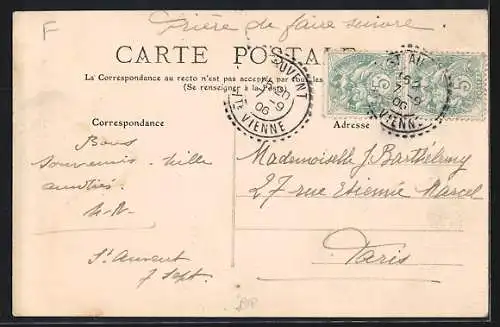 F
Prière de faire suivre
CARTE POSTALE
La Correspondance au recto n'est pas acceptée par tous les
(Se renseigner à la Poste)
Correspondance
Adresse
Bons
souvenirs. Mille
amitiés.
St Auvent
7 Sept.
Mademoiselle J. Barthélemy
27 rue Etienne Marcel
Paris
AUVENT
7 -9
06
HTE VIENNE
ST AU
7 -9
06
VIENNE
5
5